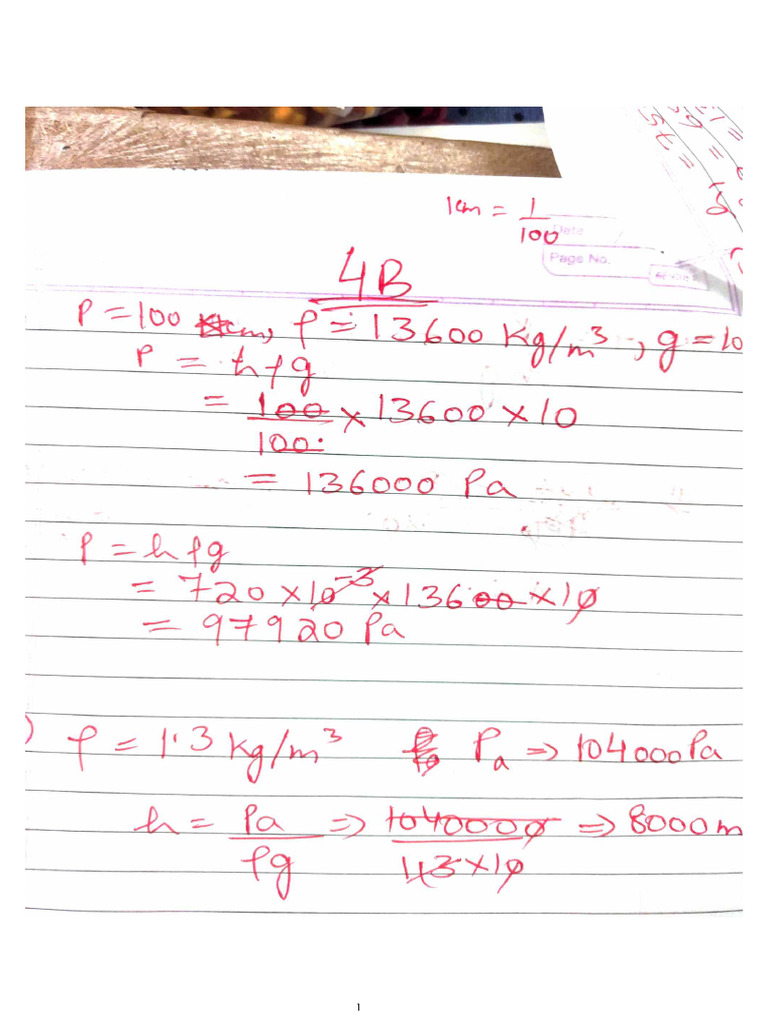 1cm = 1/100
Date
Page No.
4B
P = 100 cm, ρ = 13600 Kg/m³, g = 10
P = hρg
= 100/100 × 13600 × 10
= 136000 Pa
P = hρg
= 720 × 10⁻³ × 13600 × 10
= 97920 Pa
) ρ = 1.3 Kg/m³ Pₐ => 104000 Pa
h = Pa/ρg => 1040000/13×10 => 8000 m
1